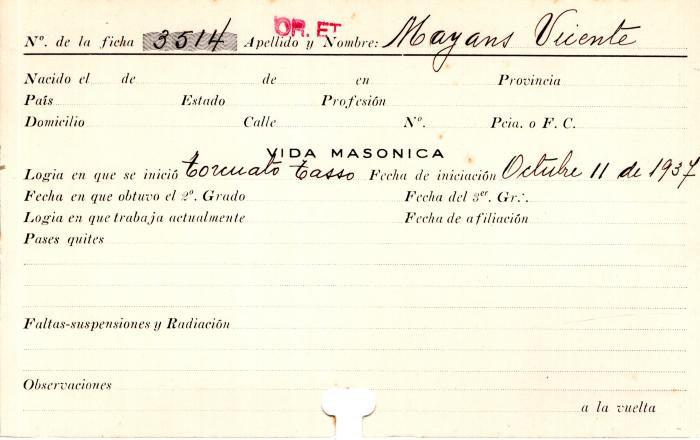 OR. ET
Nº. de la ficha 3514 Apellido y Nombre: Mayans Vicente
Nacido el de de en Provincia
País Estado Profesión
Domicilio Calle Nº. Pcia. o F. C.
VIDA MASONICA
Logia en que se inició Torcuato Tasso Fecha de iniciación Octubre 11 de 1937
Fecha en que obtuvo el 2º. Grado Fecha del 3er. Gr∴.
Logia en que trabaja actualmente Fecha de afiliación
Pases quites
Faltas-suspensiones y Radiación
Observaciones
a la vuelta